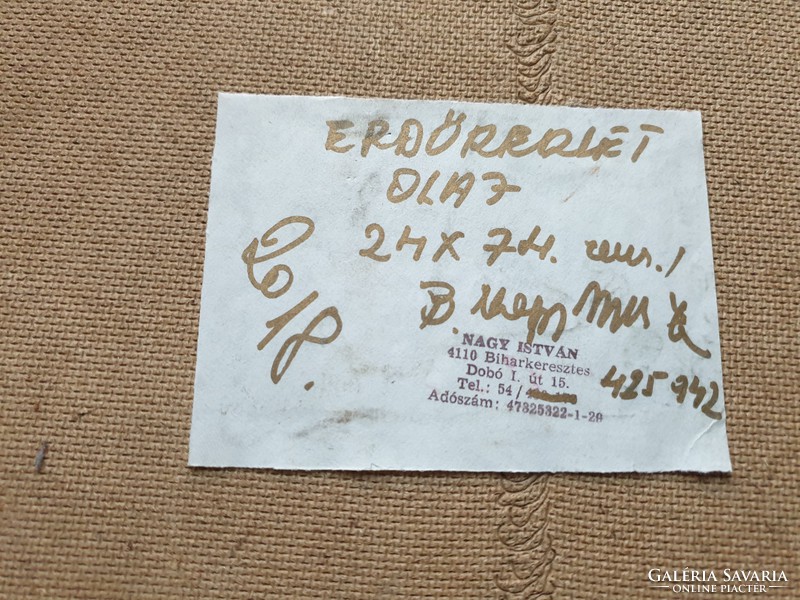 ERDŐRÉSZLET
OLAJ
24 X 74. cm.
2018.
B. Nagy
NAGY ISTVÁN
4110 Biharkeresztes
Dobó I. út 15.
Tel.: 54/
425 942
Adószám: 47325322-1-29
GALÉRIA SAVARIA
ONLINE PIACTÉR